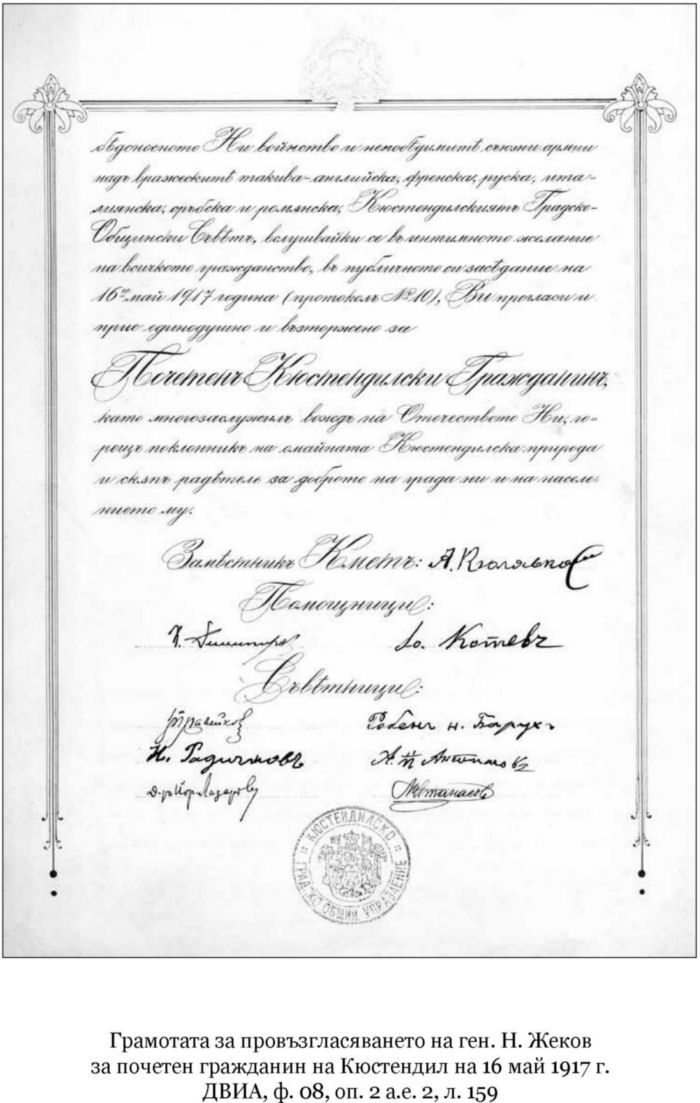 бѣдоносното Ни войнство и непобѣдимитѣ съюзни армии
надъ вражескитѣ такива - английска, френска, руска, ита-
лиянска, сръбска и ромънска, Кюстендилскиятъ Градско-
Общински Съвѣтъ, вслушвайки се въ интимното желание
на всичкото гражданство, въ публичното си заседание на
16й май 1917 година (протоколъ №10), Ви прогласи и
прие единодушно и възторжено за
Почетенъ Кюстендилски Гражданинъ,
като многозаслужилъ вождъ на Отечеството Ни, го-
рещъ поклонникъ на омайната Кюстендилска природа
и скѫпъ радѣтель за доброто на града ни и на населе-
нието му.
Замѣстникъ Кметъ:
Помощници:
Д. Димитров До. Котевъ
Съвѣтници:
Робенъ н. Барухъ
Н. Радичковъ А. П. Антимовъ
Д-ръ Йор. Лазаровъ М. Атанасов
КЮСТЕНДИЛСКО
ГРАДСКО ОБЩИН. УПРАВЛЕНИЕ
Грамотата за провъзгласяването на ген. Н. Жеков
за почетен гражданин на Кюстендил на 16 май 1917 г.
ДВИА, ф. 08, оп. 2 а.е. 2, л. 159